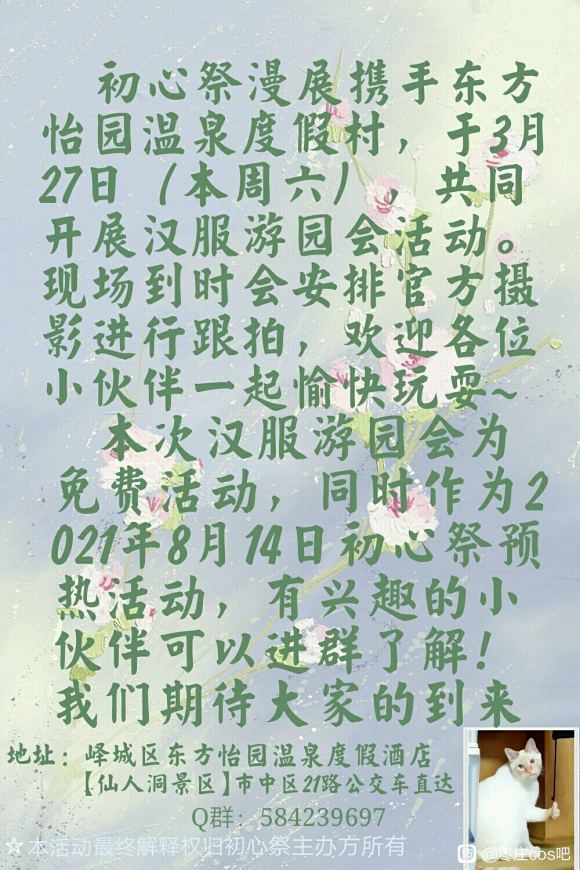 初心祭漫展携手东方
怡园温泉度假村，于3月
27日（本周六），共同
开展汉服游园会活动。
现场到时会安排官方摄
影进行跟拍，欢迎各位
小伙伴一起愉快玩耍~
本次汉服游园会为
免费活动，同时作为2
021年8月14日初心祭预
热活动，有兴趣的小
伙伴可以进群了解！
我们期待大家的到来
地址：峄城区东方怡园温泉度假酒店
【仙人洞景区】市中区21路公交车直达
Q群：584239697
☆本活动最终解释权归初心祭主办方所有
@枣庄cos吧